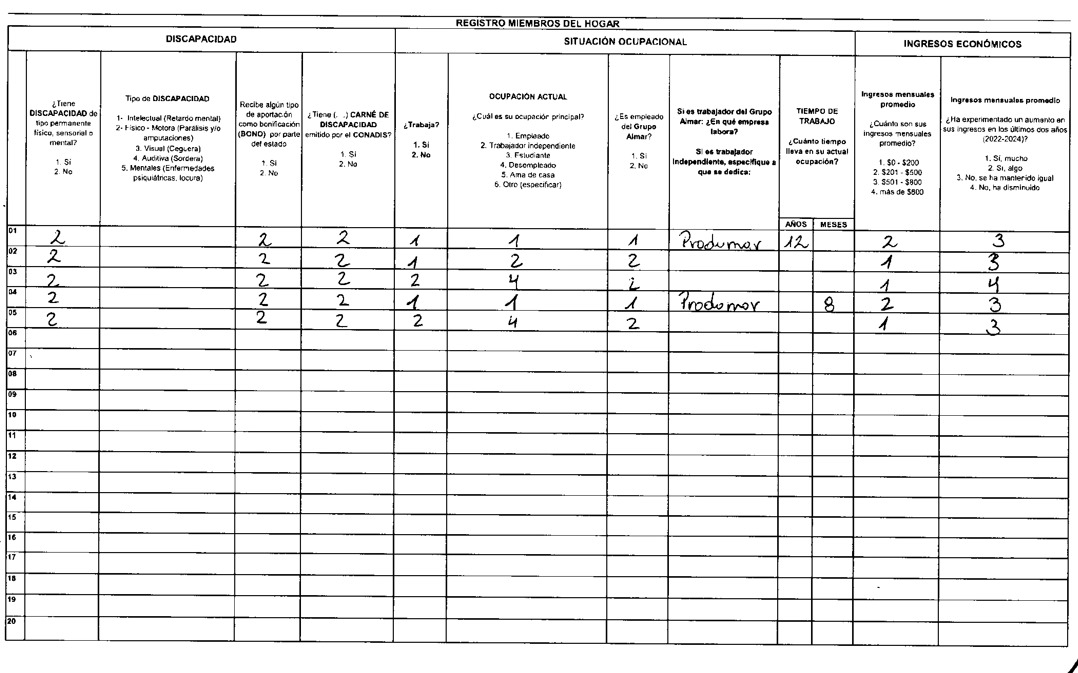 REGISTRO MIEMBROS DEL HOGAR
DISCAPACIDAD
SITUACIÓN OCUPACIONAL
INGRESOS ECONÓMICOS
¿Tiene
DISCAPACIDAD de
tipo permanente
físico, sensorial o
mental?
1. Sí
2. No
Tipo de DISCAPACIDAD
1- Intelectual (Retardo mental)
2- Físico - Motora (Parálisis y/o
amputaciones)
3. Visual (Ceguera)
4. Auditiva (Sordera)
5. Mentales (Enfermedades
psiquiátricas, locura)
Recibe algún tipo
de aportación
como bonificación
(BONO) por parte
del estado
1. Sí
2. No
¿Tiene (. .) CARNÉ DE
DISCAPACIDAD
emitido por el CONADIS?
1. Sí
2. No
¿Trabaja?
1. Sí
2. No
OCUPACIÓN ACTUAL
¿Cuál es su ocupación principal?
1. Empleado
2. Trabajador independiente
3. Estudiante
4. Desempleado
5. Ama de casa
6. Otro (especificar)
¿Es empleado
del Grupo
Almar?
1. Sí
2. No
Si es trabajador del Grupo
Almar: ¿En qué empresa
labora?
Si es trabajador
Independiente, especifique a
que se dedica:
TIEMPO DE
TRABAJO
¿Cuánto tiempo
lleva en su actual
ocupación?
AÑOS MESES
Ingresos mensuales
promedio
¿Cuánto son sus
ingresos mensuales
promedio?
1. $0 - $200
2. $201 - $500
3. $501 - $800
4. más de $800
Ingresos mensuales promedio
¿Ha experimentado un aumento en
sus ingresos en los últimos dos años
(2022-2024)?
1. Sí, mucho
2. Sí, algo
3. No, se ha mantenido igual
4. No, ha disminuido
01 2 2 2 1 1 1 Produmar 12 2 3
02 2 2 2 1 2 2 1 3
03 2 2 2 2 4 2 1 4
04 2 2 2 1 1 1 Produmar 8 2 3
05 2 2 2 2 4 2 1 3
06
07
08
09
10
11
12
13
14
15
16
17
18
19
20